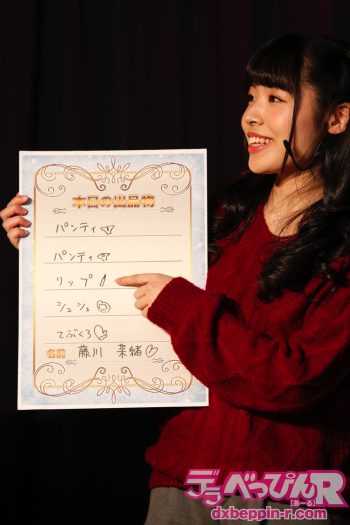 本日の出品物
パンティ
パンティ
リップ
シュシュ
てぶくろ
名前 藤川 菜緒
デラべっぴんR
【あーる】
dxbeppin-r.com